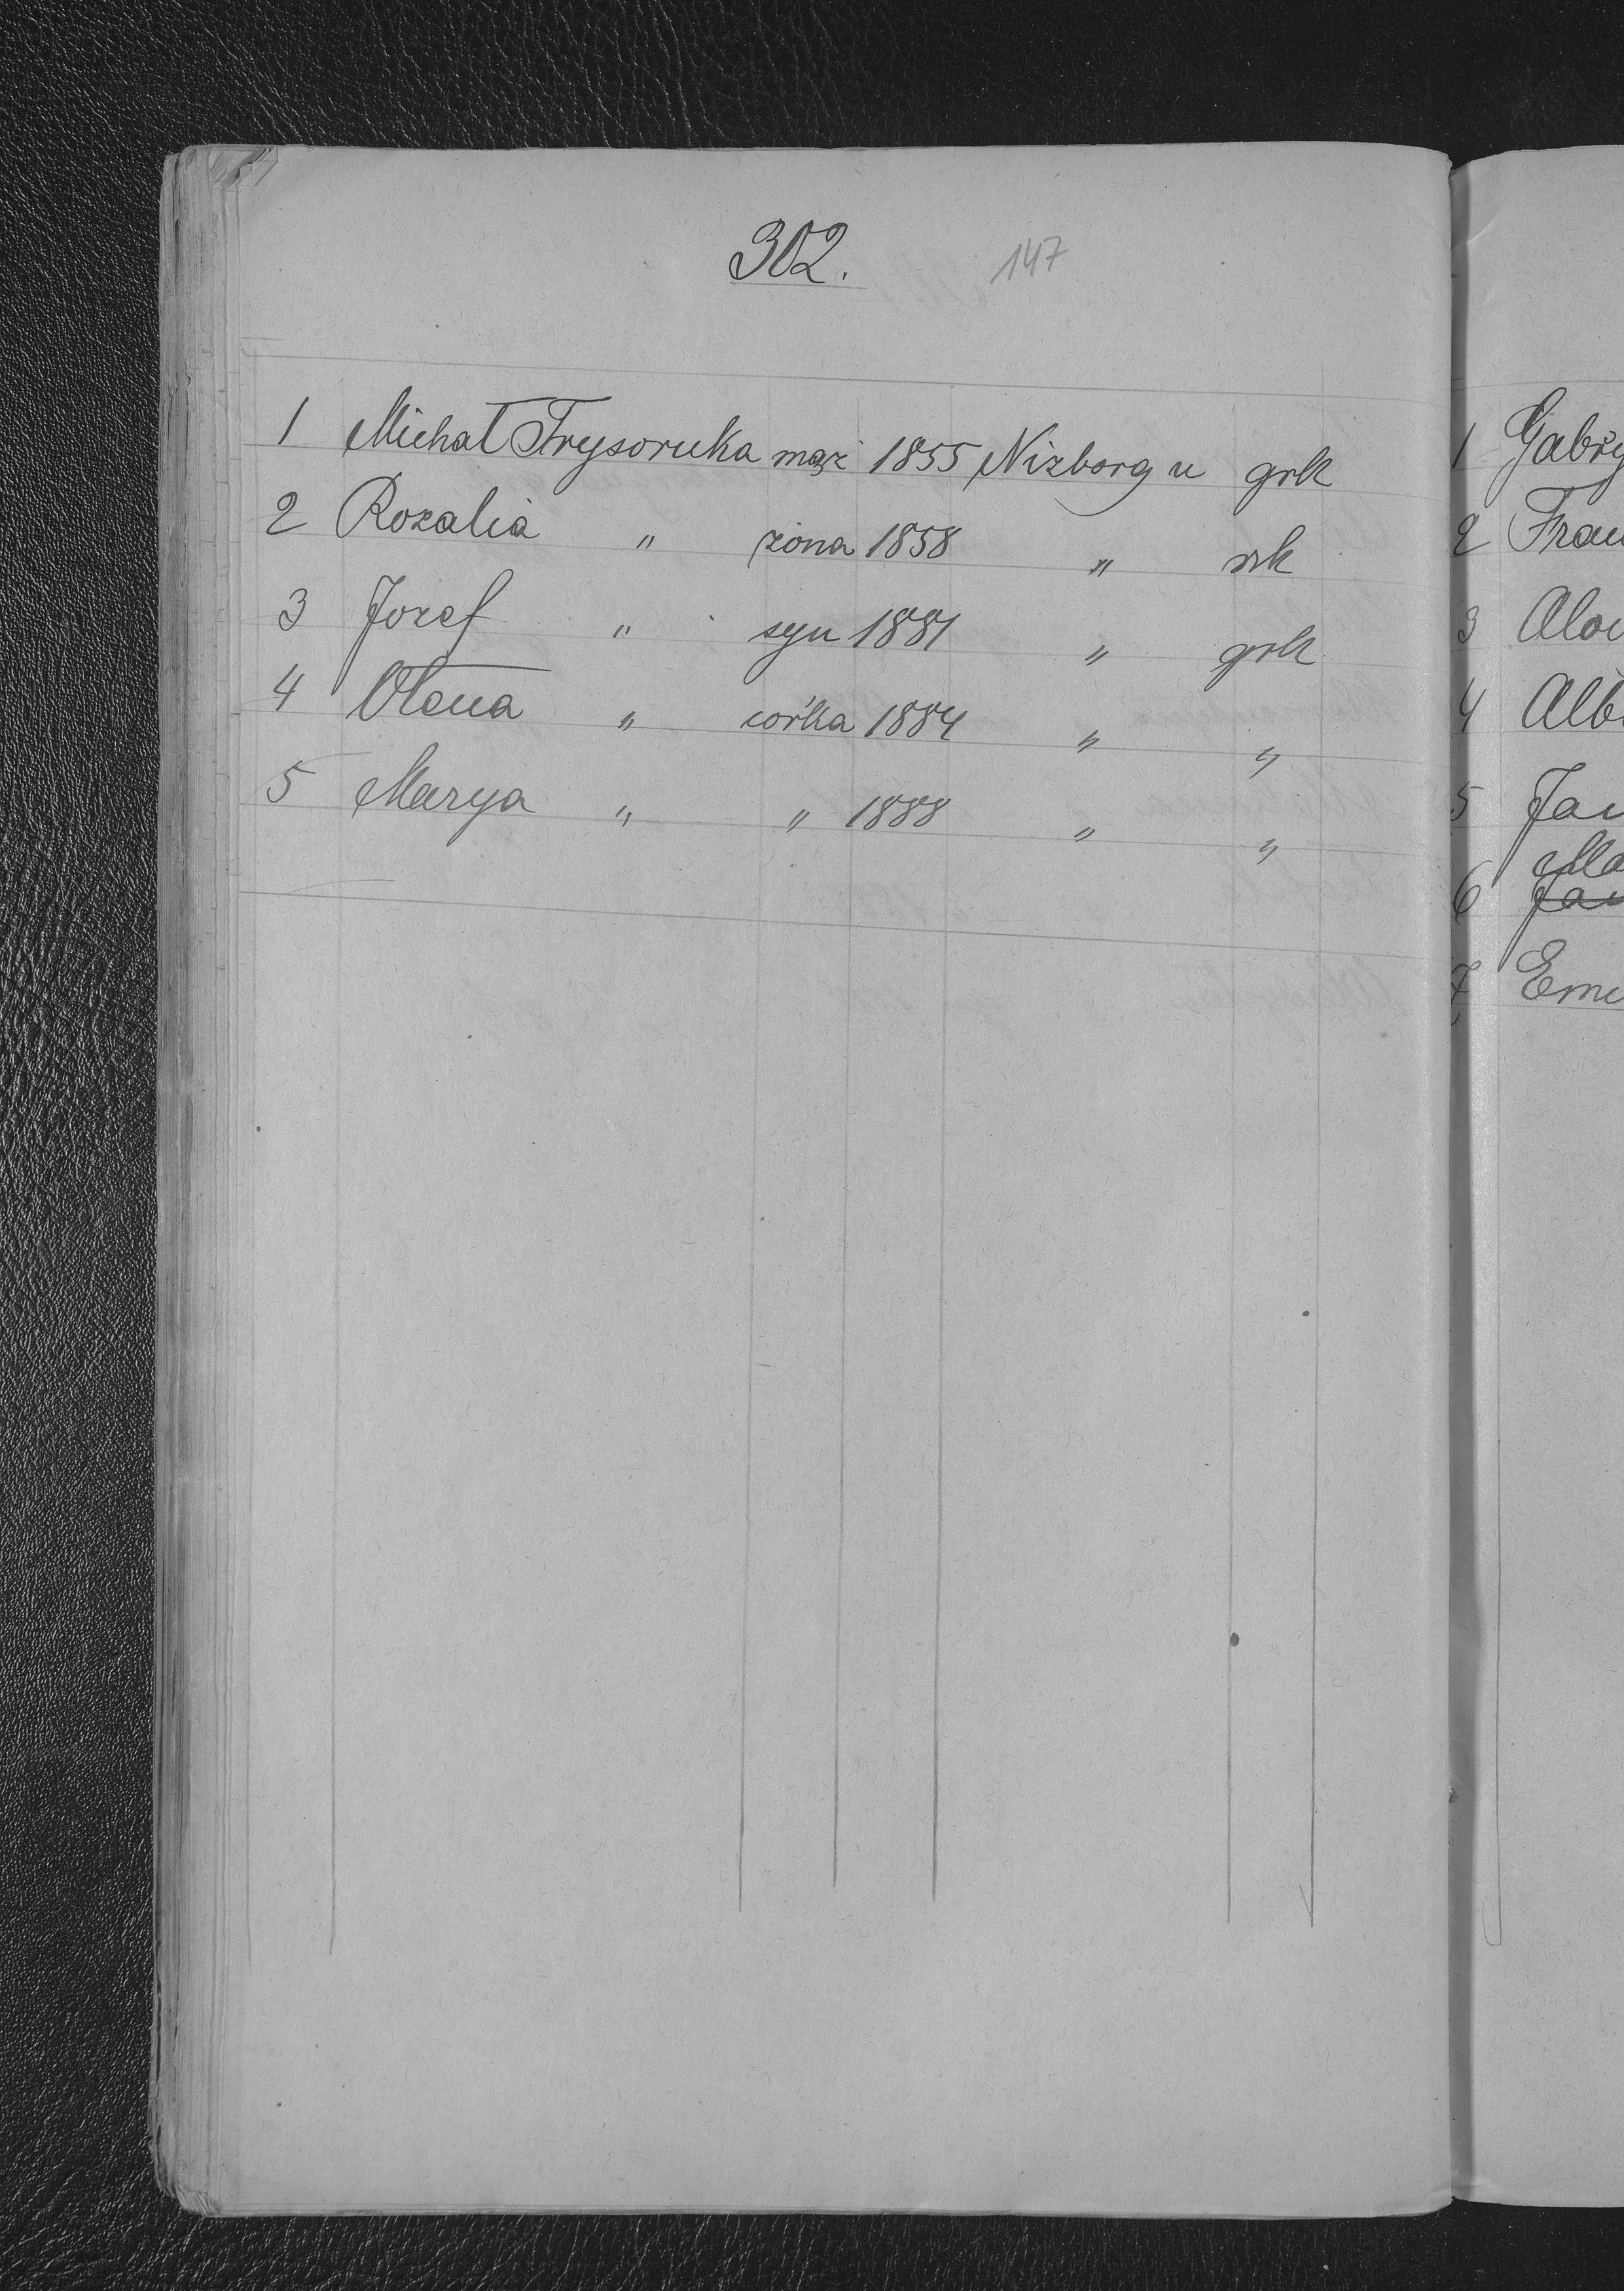 302. 147
1 Michał Trysoruka mąż 1855 Nizborg n grk
2 Rozalia " żona 1858 " rzk
3 Jozef " syn 1881 " grk
4 Olena " córka 1884 " "
5 Marya " " 1888 " "
1 Gabry
2 Fran
3 Aloi
4 Albi
5 Jan
Ma
6 Jan
7 Emi